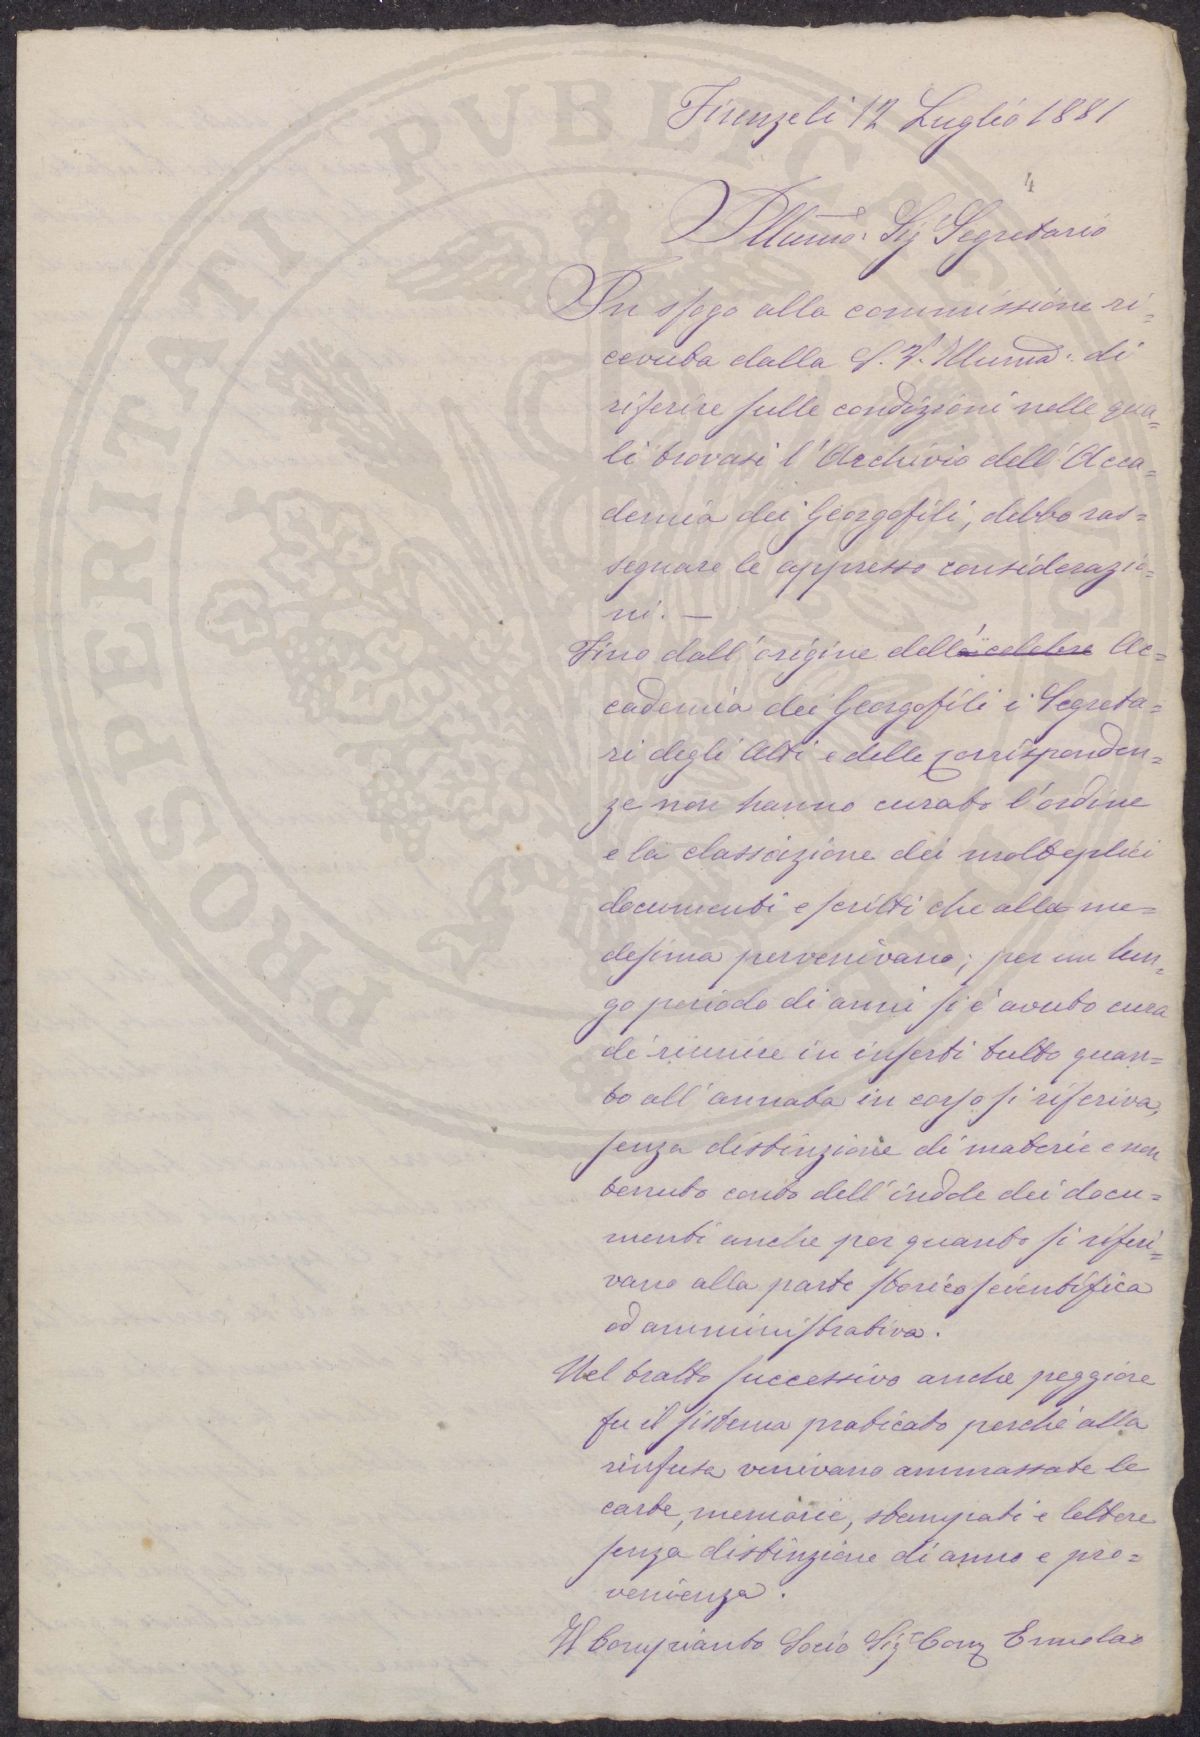 Firenze li 12 Luglio 1881
4
Illumo: Sig Segretario
In sfogo alla commissione ri=
cevuta dalla S. V. Illuma: di
riferire sulle condizioni nelle qua=
li trovasi l'Archivio dell'Acca=
demia dei Georgofili, debbo ras=
segnare le appresso considerazio=
ni. —
Fino dall'origine della celebre Ac=
cademia dei Georgofili i Segreta=
ri degli Atti e delle corrisponden=
ze non hanno curato l'ordine
e la classazione dei molteplici
documenti e scritti che alla me=
desima pervenivano; per un lun=
go periodo di anni si è avuto cura
di riunire in inserti tutto quan=
to all'annata in corso si riferiva,
senza distinzione di materie e non
tenuto conto dell'indole dei docu=
menti anche per quanto si riferi=
vano alla parte storico scientifica
od amministrativa.
Nel tratto successivo anche peggiore
fu il sistema praticato perché alla
rinfusa venivano ammassate le
carte, memorie, stampati e lettere
senza distinzione di anno e pro=
venienza.
Il Compianto Socio Sig Conz Ermolao
PROSPERITATI PVBLICAE AVGENDAE